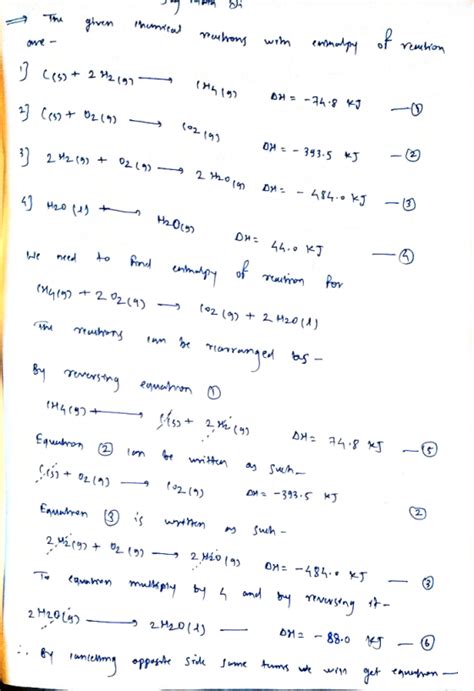 ⇒ The given chemical reactions with enthalpy of reaction
are -
1] C(s) + 2 H2(g) ⟶ CH4(g) ΔH = -74.8 KJ —①
2] C(s) + O2(g) ⟶ CO2(g) ΔH = -393.5 KJ —②
3] 2 H2(g) + O2(g) ⟶ 2 H2O(g) ΔH = -484.0 KJ —③
4] H2O(l) ⟶ H2O(g) ΔH = 44.0 KJ —④
We need to find enthalpy of reaction for
CH4(g) + 2 O2(g) ⟶ CO2(g) + 2 H2O(l)
The reactions can be rearranged as -
By reversing equation ①
CH4(g) ⟶ C(s) + 2 H2(g) ΔH = 74.8 KJ —⑤
Equation ② can be written as such -
C(s) + O2(g) ⟶ CO2(g) ΔH = -393.5 KJ ②
Equation ③ is written as such -
2 H2(g) + O2(g) ⟶ 2 H2O(g) ΔH = -484.0 KJ —③
To equation multiply by 4 and by reversing it -
2 H2O(g) ⟶ 2 H2O(l) — ΔH = -88.0 KJ —⑥
∴ By cancelling opposite side same turms we will get equation -